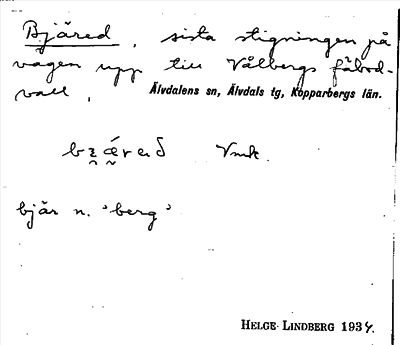 Bjäred, sista stigningen på
vägen upp till Vålbergs fäbod-
vall, Älvdalens sn, Älvdals tg, Kopparbergs län.
Vmk.
bjär n. 'berg'
HELGE LINDBERG 1934.